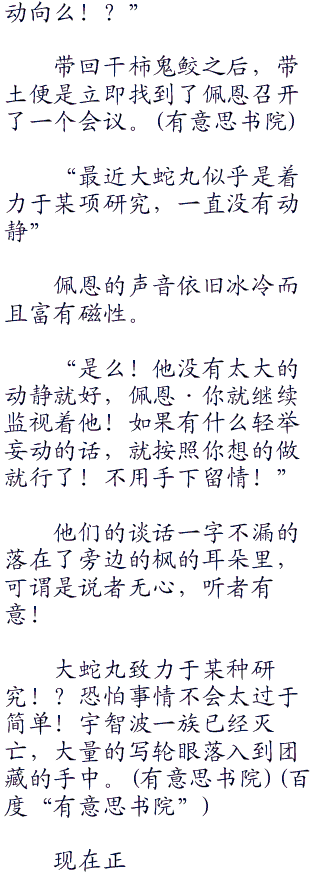 动向么！？”
带回干柿鬼鲛之后，带
土便是立即找到了佩恩召开
了一个会议。(有意思书院)
“最近大蛇丸似乎是着
力于某项研究，一直没有动
静”
佩恩的声音依旧冰冷而
且富有磁性。
“是么！他没有太大的
动静就好，佩恩·你就继续
监视着他！如果有什么轻举
妄动的话，就按照你想的做
就行了！不用手下留情！”
他们的谈话一字不漏的
落在了旁边的枫的耳朵里，
可谓是说者无心，听者有
意！
大蛇丸致力于某种研
究！？恐怕事情不会太过于
简单！宇智波一族已经灭
亡，大量的写轮眼落入到团
藏的手中。(有意思书院)(百
度“有意思书院”)
现在正